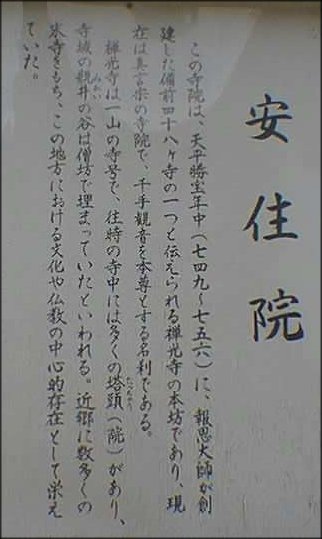 安住院
この寺院は、天平勝宝年中(七四九～七五六)に、報恩大師が創
建した備前四十八ヶ寺の一つと伝えられる禅光寺の本坊であり、現
在は真言宗の寺院で、千手観音を本尊とする名刹である。
禅光寺は一山の寺号で、往時の寺中には多くの塔頭(院)があり、
寺域の瓶井の谷は僧坊で埋まっていたといわれる。近郷に数多くの
末寺をもち、この地方における文化や仏教の中心的存在として栄え
ていた。